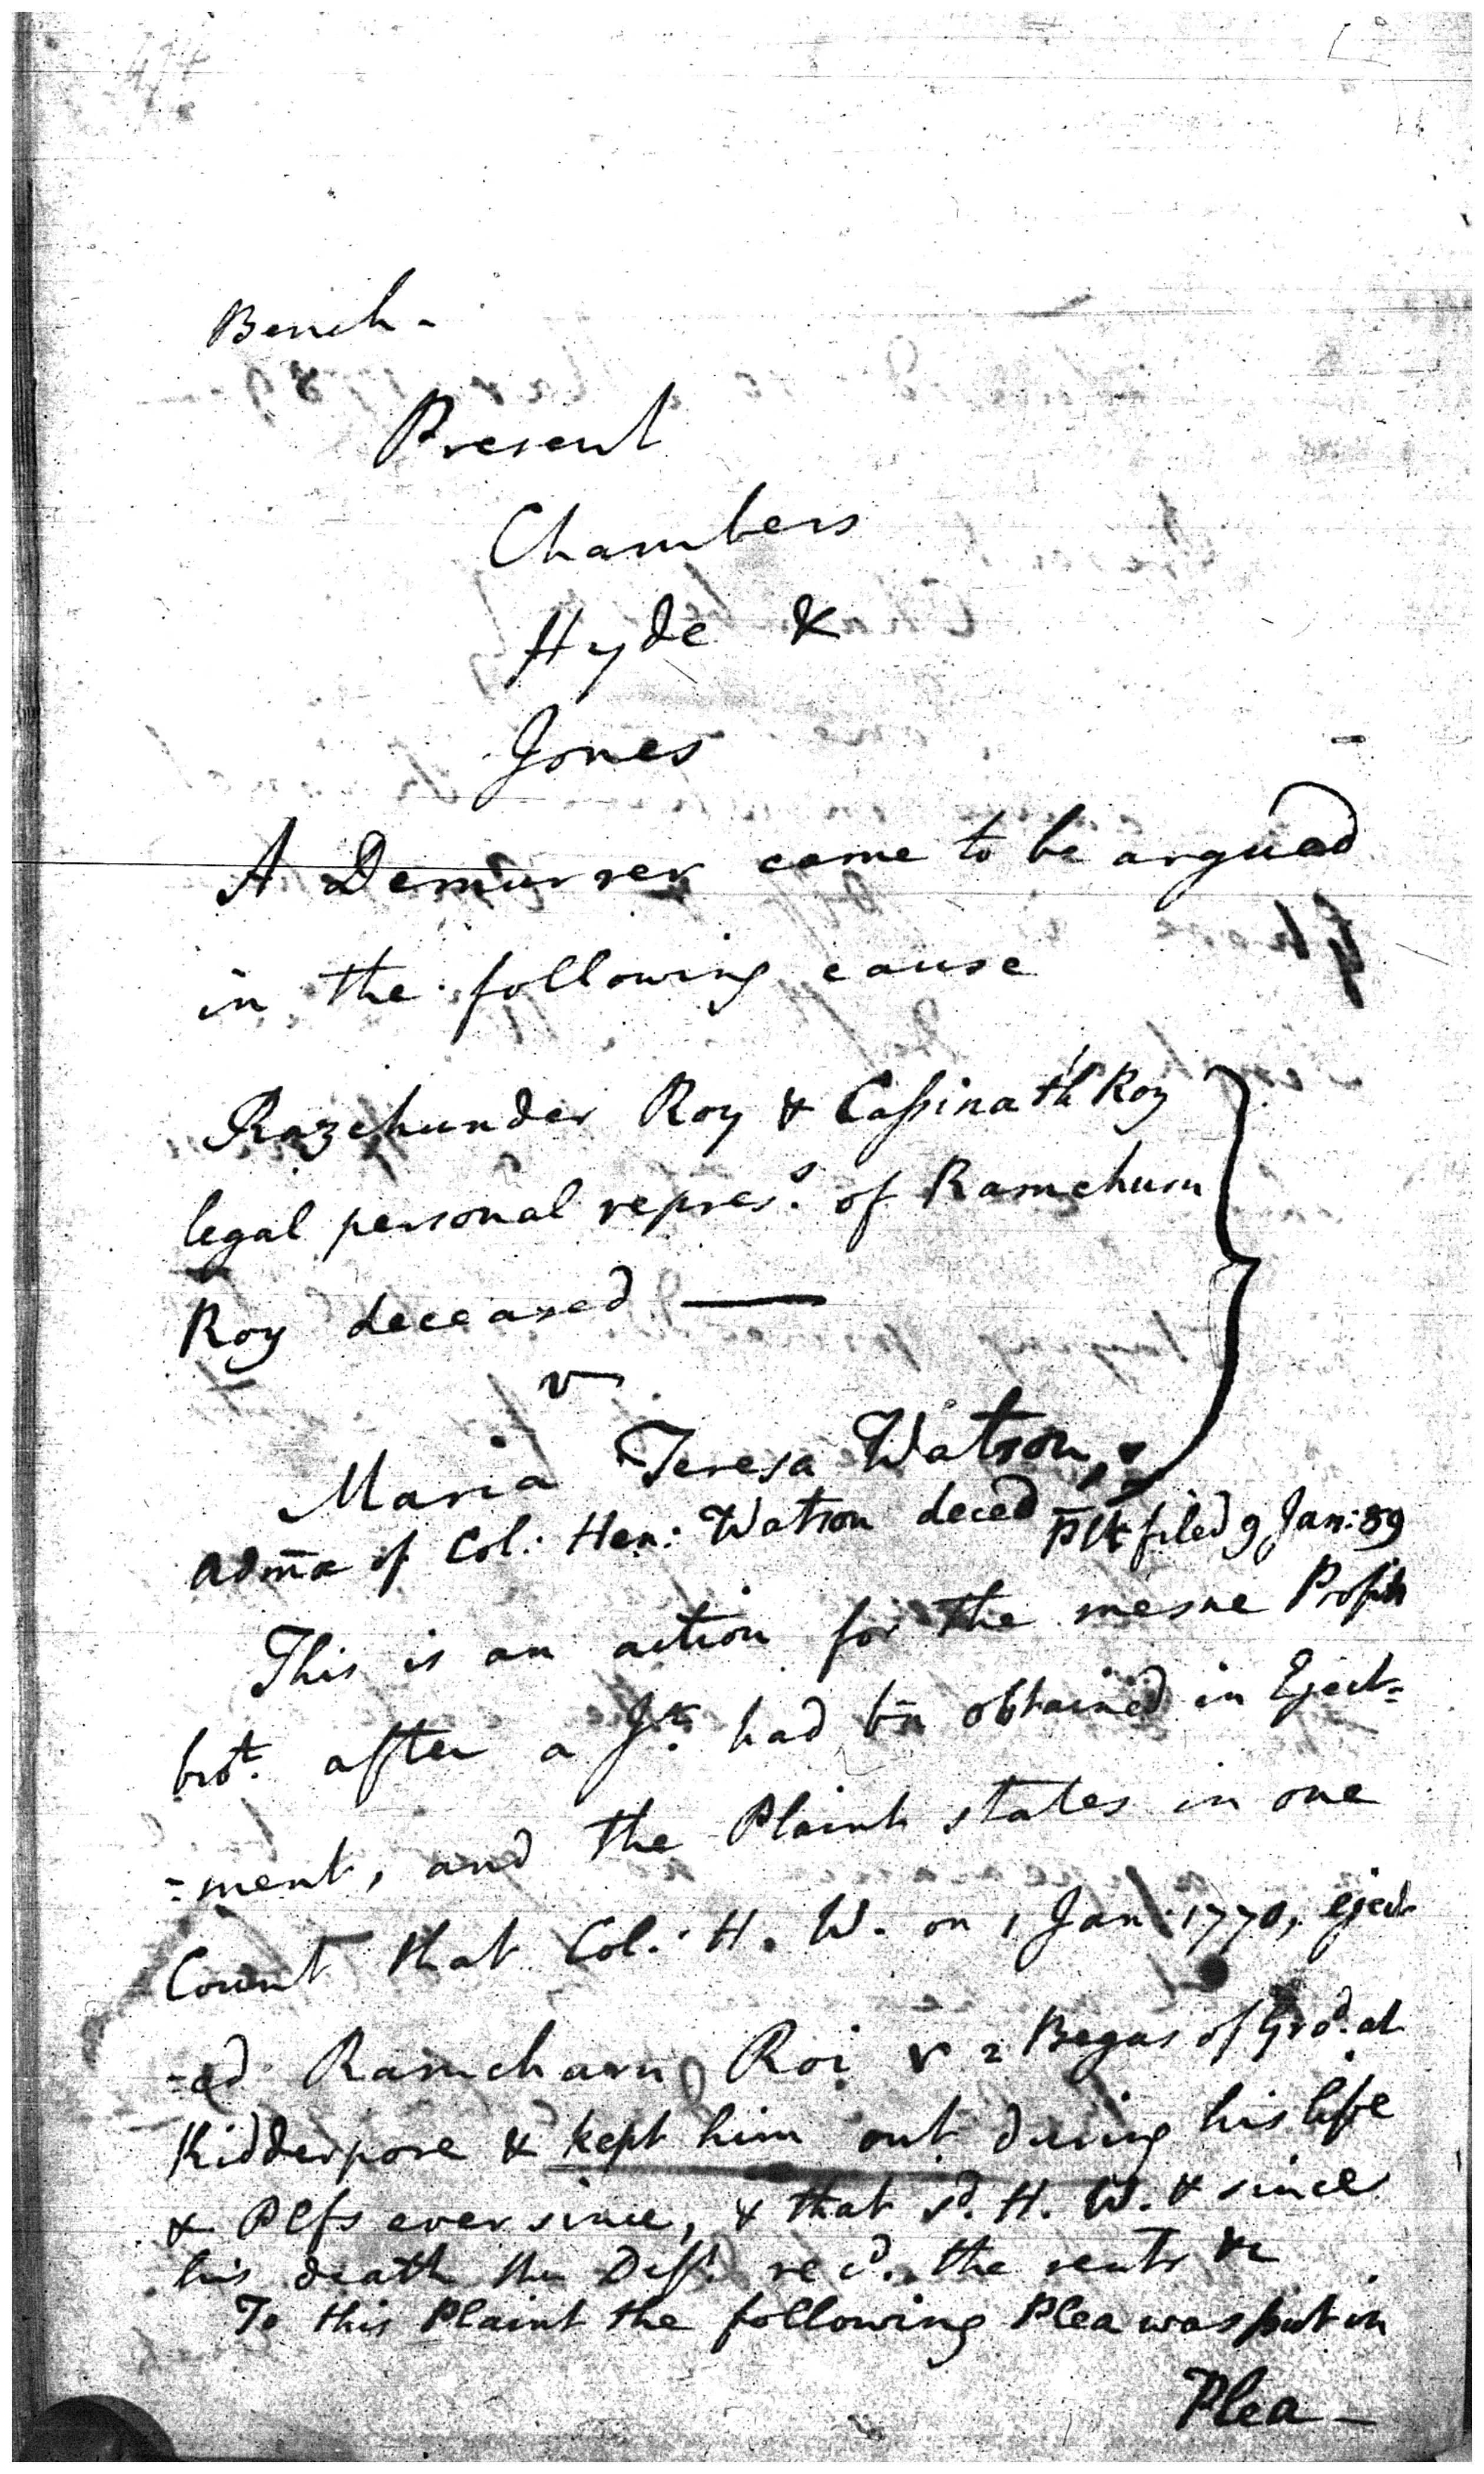 Bench -
Present
Chambers
Hyde &
Jones
A Demurrer came to be argued
in the following cause
Razchunder Roy & Cassinath Roy
legal personal repress. of Ramchurn
Roy deceased —
v
Maria Teresa Watson,
admā of Col: Hen: Watson deced Plt filed 9 Jan: 89
This is an action for the mesne Profits
brot. after a Jt. had bn obtained in Eject=
=ment, and the Plaint states in one
Count that Col: H. W. on 1 Jan: 1770, eject
=ed Ramcharn Roi 2 Begas of Grd. at
Kidderpore & kept him out during his life
& Plfs ever since, & that sd. H. W. & since
his death the Deft. recd. the rents &c
To this Plaint the following Plea was put in
Plea -